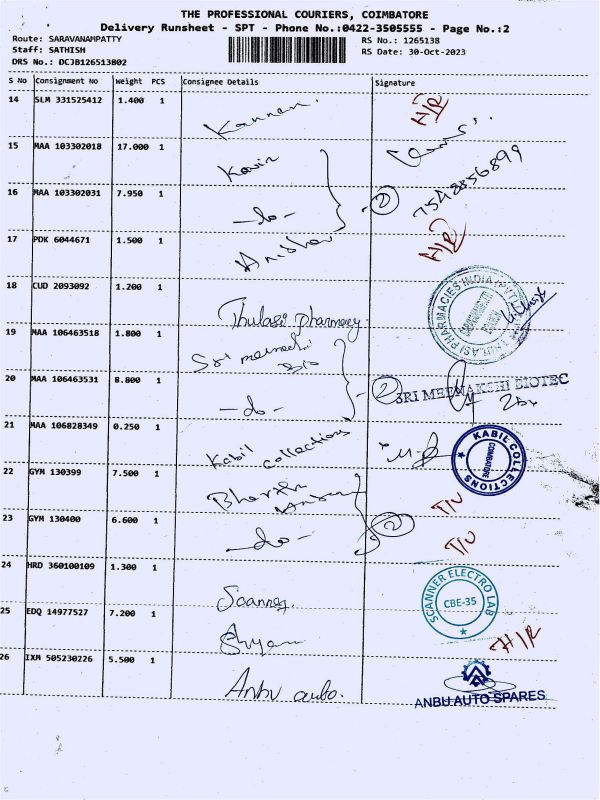 THE PROFESSIONAL COURIERS, COIMBATORE
Delivery Runsheet - SPT - Phone No.:0422-3505555 - Page No.:2
Route: SARAVANAMPATTY RS No.: 1265138
Staff: SATHISH RS Date: 30-Oct-2023
DRS No.: DCJB126513802
S No Consignment No Weight PCS Consignee Details Signature
14 SLM 331525412 1.400 1 Kannan. H/R
15 MAA 103302018 17.000 1 Kavin
7548856899
16 MAA 103302031 7.950 1 -do- 2
17 PDK 6044671 1.500 1 H/R
18 CUD 2093092 1.200 1 Thulasi pharmacy
THULASI PHARMACIES INDIA PVT LTD
SARAVANAMPATTI
19 MAA 106463518 1.800 1 Sri meenachi Bio
20 MAA 106463531 8.800 1 -do- 2 SRI MEENAKSHI BIOTEC
21 MAA 106828349 0.250 1 Kabil collections
KABIL COLLECTIONS
COIMBATORE
22 GYM 130399 7.500 1 Bharath T/U
23 GYM 130400 6.600 1 -do- 2 T/U
24 HRD 360100109 1.300 1 Scanner
SCANNER ELECTRO LAB
CBE-35
25 EDQ 14977527 7.200 1 Shyam H/R
26 IXM 505230226 5.500 1 Anbu auto.
ANBU AUTO SPARES